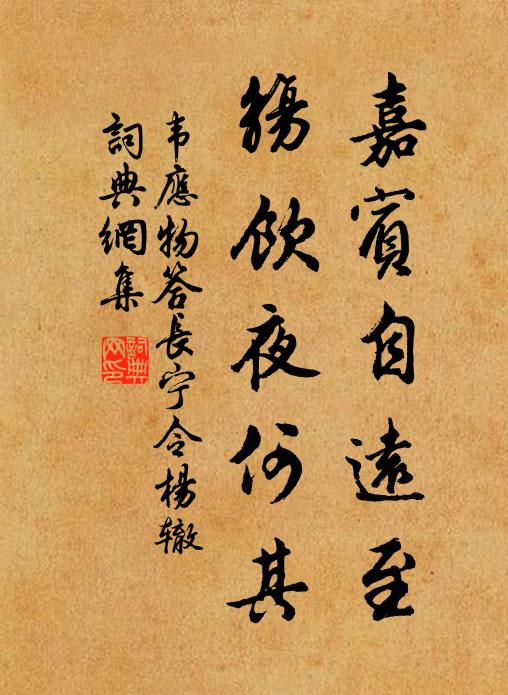 嘉賓自遠至
觴飲夜何其
韦應物答長宁令楊辙
詞典網集
詞典網印